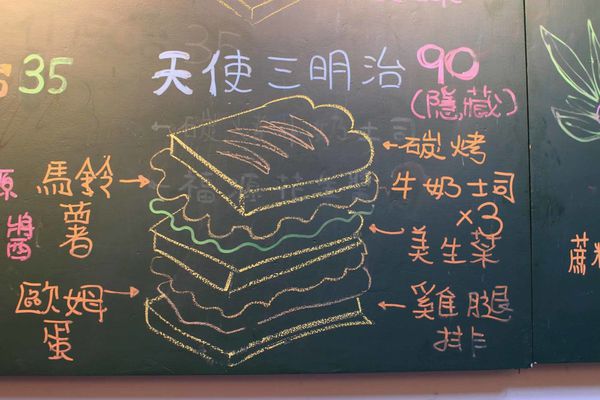 35
天使三明治 90
(隱藏)
馬鈴
薯
碳烤
牛奶士司
×3
美生菜
醬
歐姆
蛋
雞腿
排